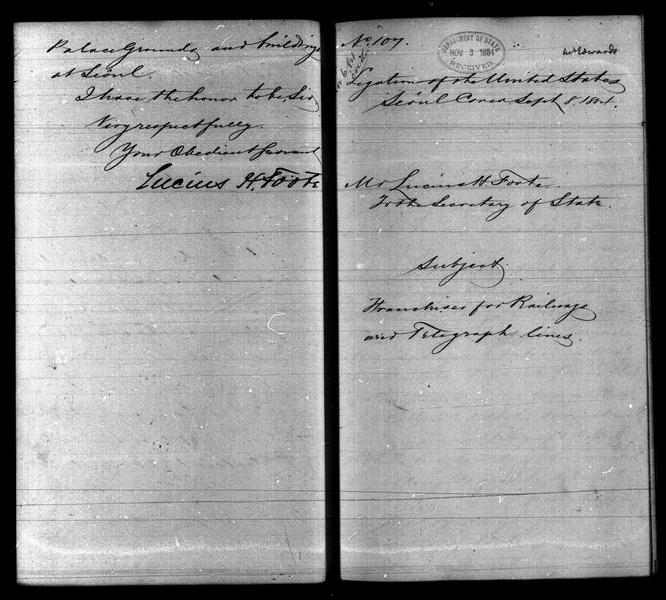 Palace Grounds and buildings
at Seoul.
I have the honor to be, Sir,
Very respectfully.
Your Obedient Servant
Lucius H. Foote
No. 107.
DEPARTMENT OF STATE
NOV 3 1884
RECEIVED
Mr Edwards
Legation of the United States
Séoul Corea Sept 8. 1884.
Mr Lucius H Foote.
To the Secretary of State.
Subject.
Franchises for Railways
and Telegraph lines.